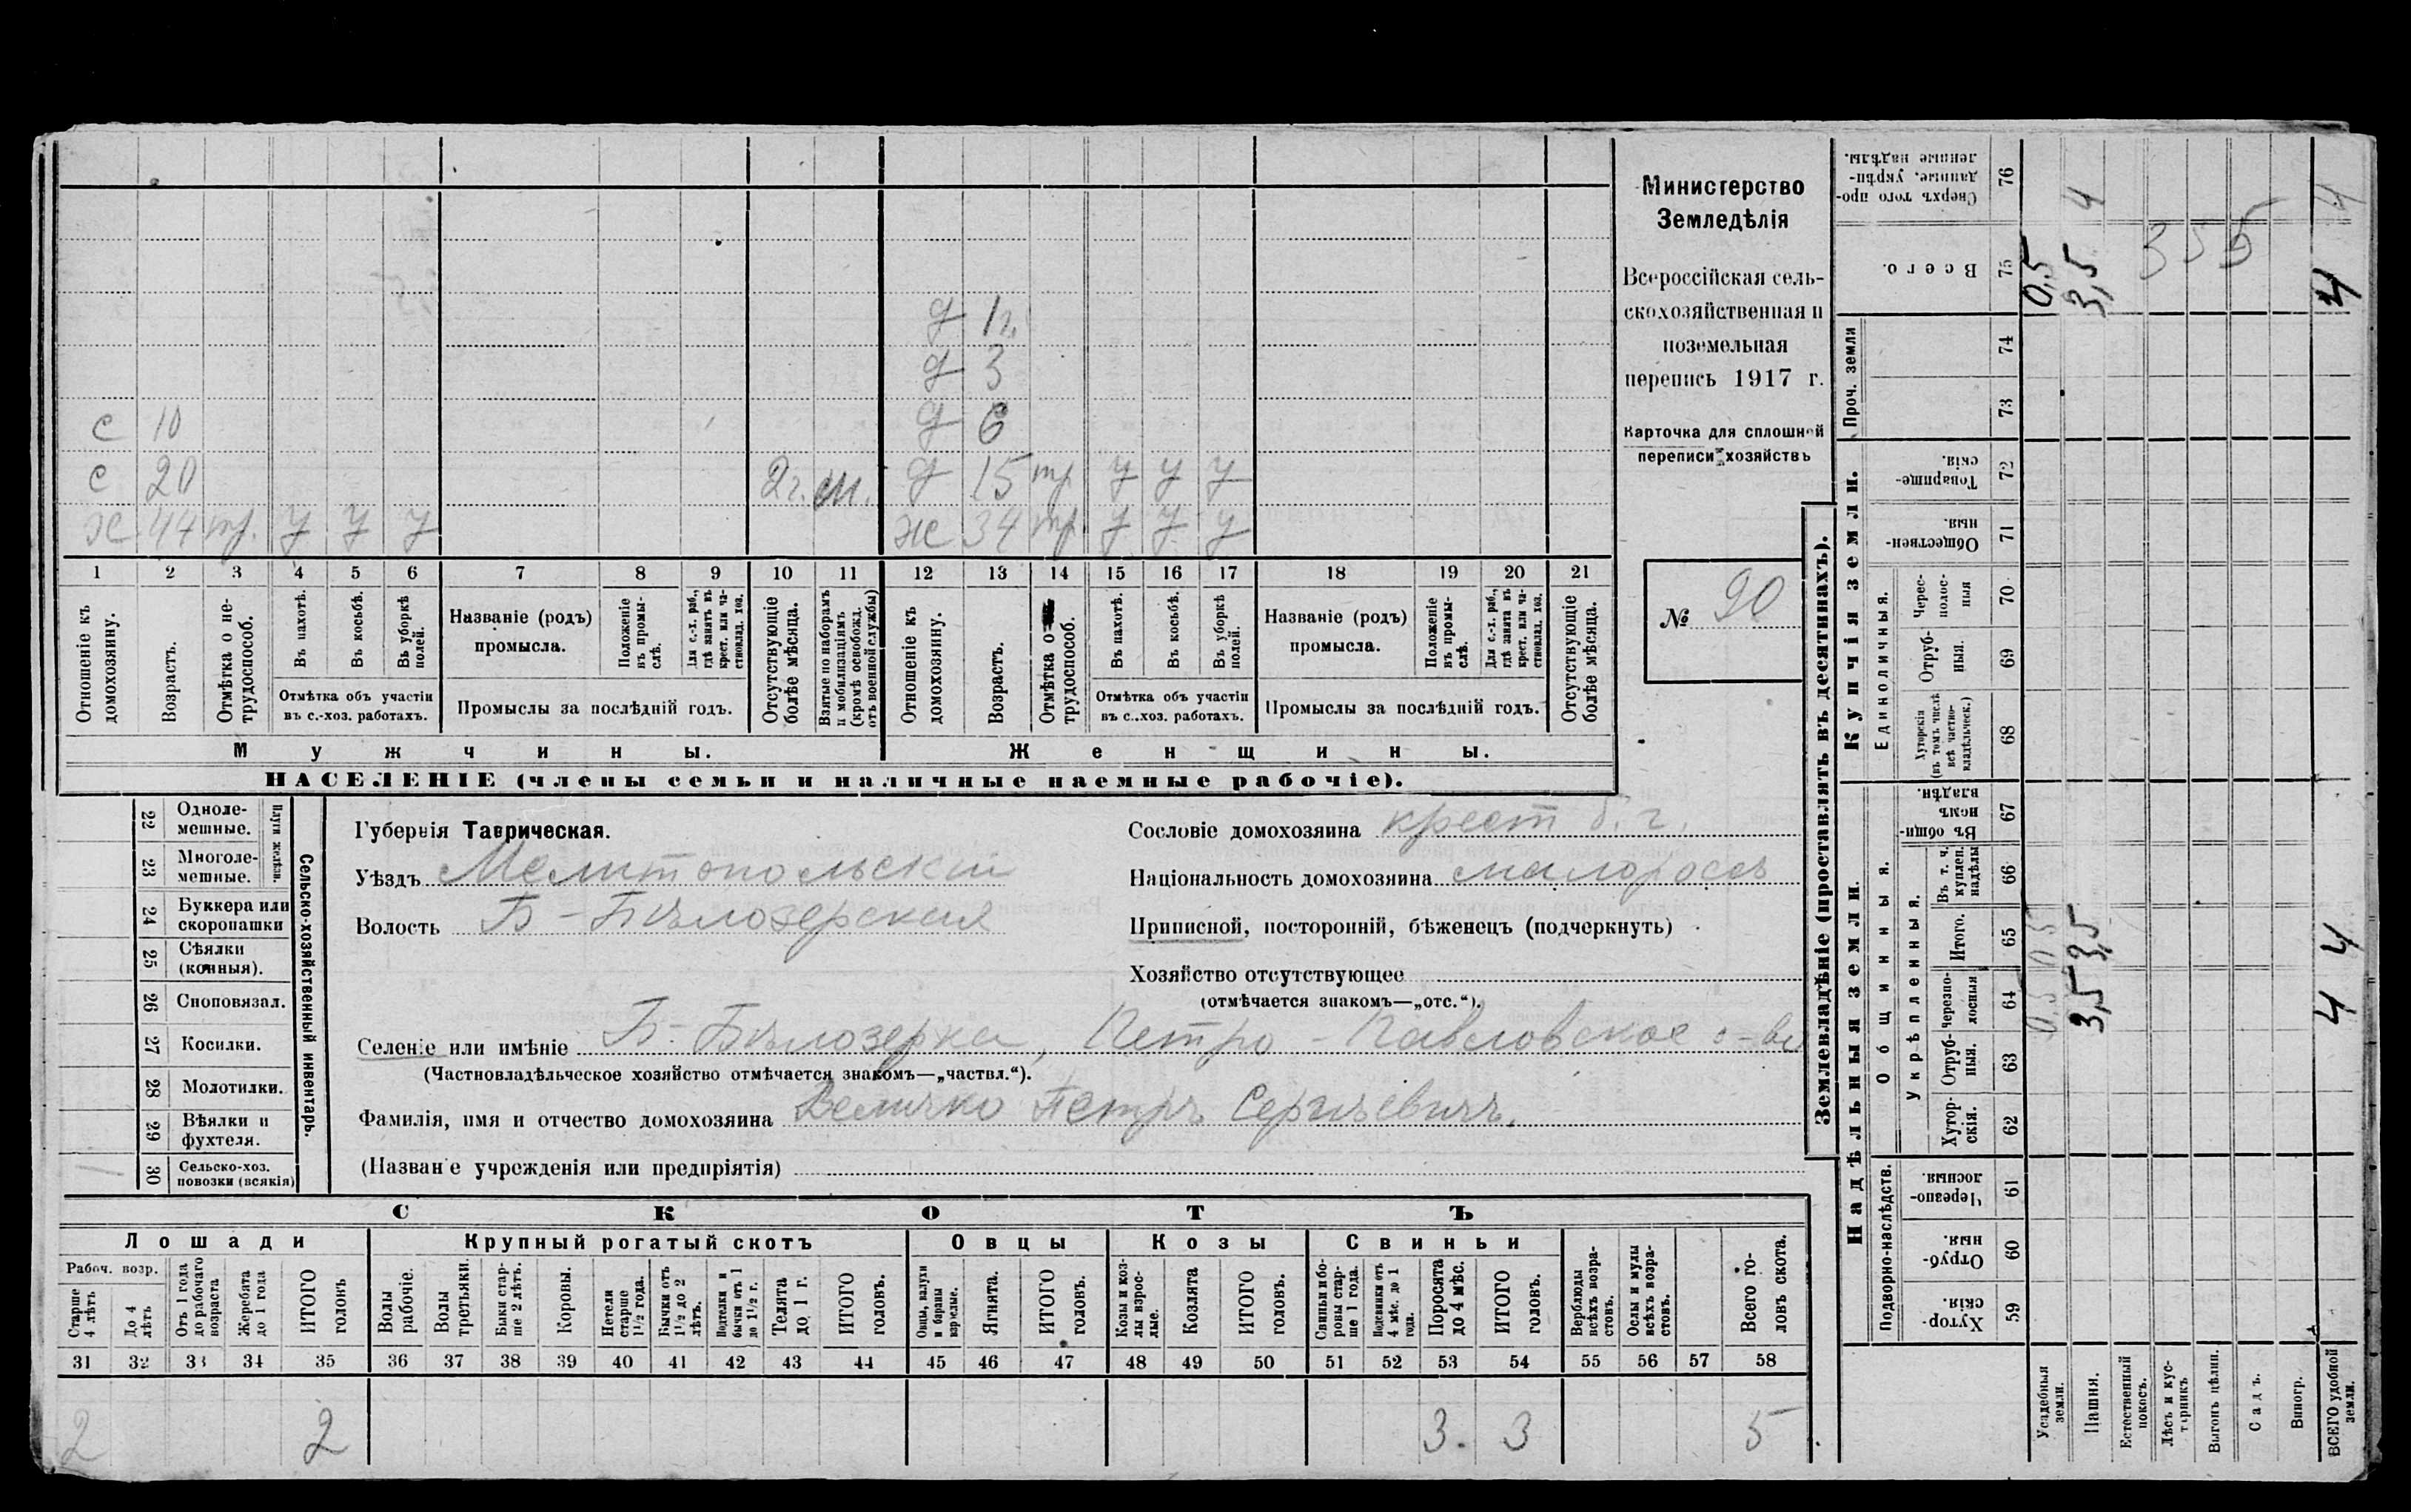 Министерство
Земледѣлія
Всероссійская сель-
скохозяйственная и
поземельная
перепись 1917 г.
Карточка для сплошной
переписи хозяйствъ
№ 90
д 1 г.
д 3
с 10 д 6
с 20 2 г. м. д 15 тр у у у
х 44 тр. у у у ж 34 тр. у у у
1 2 3 4 5 6 7 8 9 10 11 12 13 14 15 16 17 18 19 20 21
Отношеніе къ домохозяину.
Возрастъ.
Отмѣтка о не-трудоспособ.
Въ пахотѣ.
Въ косьбѣ.
Въ уборкѣ полей.
Отмѣтка объ участіи въ с.-хоз. работахъ.
Названіе (родъ) промысла.
Положеніе въ промы-слѣ.
Для с.-х. раб., гдѣ занятъ въ крест. или ча-стновлад. хоз.
Промыслы за послѣдній годъ.
Отсутствующіе болѣе мѣсяца.
Взятые по наборамъ и мобилизаціямъ (кромѣ освобожд. отъ военной службы)
Отношеніе къ домохозяину.
Возрастъ.
Отмѣтка о трудоспособ.
Въ пахотѣ.
Въ косьбѣ.
Въ уборкѣ полей.
Отмѣтка объ участіи въ с.-хоз. работахъ.
Названіе (родъ) промысла.
Положеніе въ промы-слѣ.
Для с.-х. раб., гдѣ занята въ крест. или ча-стновлад. хоз.
Промыслы за послѣдній годъ.
Отсутствующіе болѣе мѣсяца.
Мужчины. Женщины.
НАСЕЛЕНІЕ (члены семьи и наличные наемные рабочіе).
Сельско-хозяйственный инвентарь.
Плуги желѣзн.
22 Одноле-мешные.
23 Многоле-мешные.
24 Буккера или скоропашки
25 Сѣялки (конныя).
26 Сноповязал.
27 Косилки.
28 Молотилки.
29 Вѣялки и фухтеля.
30 Сельско-хоз. повозки (всякія)
Губернія Таврическая.
Уѣздъ Мелитопольскій
Волость Б-Бѣлозерская
Сословіе домохозяина крест б. г.
Національность домохозяина малороссъ
Приписной, посторонній, бѣженецъ (подчеркнуть)
Хозяйство отсутствующее
(отмѣчается знакомъ—„отс.“).
Селеніе или имѣніе Б-Бѣлозерка, Петро-Павловское о-во
(Частновладѣльческое хозяйство отмѣчается знакомъ—„частвл.“).
Фамилія, имя и отчество домохозяина Величко Петръ Сергѣевичъ.
(Названіе учрежденія или предпріятія)
СКОТЪ
Лошади Крупный рогатый скотъ Овцы Козы Свиньи
Рабоч. возр.
Старше 4 лѣтъ
До 4 лѣтъ
Отъ 1 года до рабочаго возраста
Жеребята до 1 года
ИТОГО головъ
Волы рабочіе.
Волы третьяки.
Быки стар-ше 2 лѣтъ.
Коровы.
Нетели старше 1½ года.
Бычки отъ 1½ до 2 лѣтъ.
Подтелки и бычки отъ 1 до 1½ г.
Телята до 1 г.
ИТОГО головъ.
Овцы, валухи и бараны взрослые.
Ягнята.
ИТОГО головъ.
Козы и коз-лы взрос-лые.
Козлята
ИТОГО головъ.
Свиньи и бо-ровы стар-ше 1 года.
Подсвинки отъ 4 мѣс. до 1 года.
Поросята до 4 мѣс.
ИТОГО головъ.
Верблюды всѣхъ возра-стовъ.
Ослы и мулы всѣхъ возра-стовъ.
Всего го-ловъ скота.
31 32 33 34 35 36 37 38 39 40 41 42 43 44 45 46 47 48 49 50 51 52 53 54 55 56 57 58
2 2 3. 3 5
Землевладѣніе (проставлять въ десятинахъ).
Надѣльныя земли. Купчія земли. Проч. земли
Подворно-наслѣдств. Общинныя. Укрѣпленныя. Единоличныя.
59 Хутор-скія.
60 Отруб-ныя.
61 Черезпо-лосныя.
62 Хутор-скія.
63 Отруб-ныя.
64 Черезпо-лосныя
65 Итого.
66 Въ т. ч. куплен. надѣлы
67 Въ общин-номъ владѣн.
68 Хуторскія (въ томъ числѣ всѣ частно-владѣльческ.)
69 Отруб-ныя.
70 Черес-полос-ныя
71 Обществен-ныя.
72 Товарище-скія.
73
74
75 Всего.
76 Сверхъ того про-данные, укрѣп-ленные надѣлы.
Усадебныя земли. 0,5 0,5 0,5
Пашня. 3,5 3,5 3,5 4
Естественный покосъ.
Лѣсъ и кус-тарникъ
Выгонъ цѣлин.
Садъ.
Виногр.
ВСЕГО удобной земли. 4 4 4 4
3 5 5